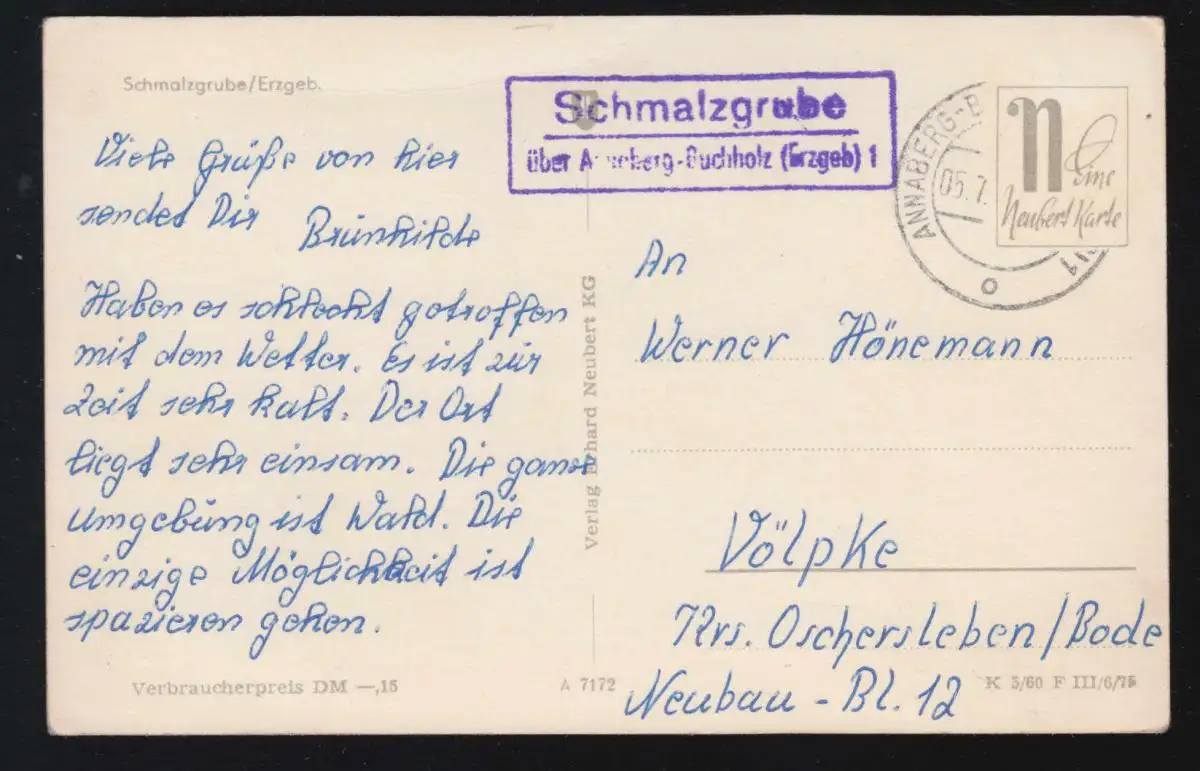 Schmalzgrube/Erzgeb.
Viele Grüße von hier
sendet Dir Brunhilde
Haben es schlecht getroffen
mit dem Wetter. Es ist zur
Zeit sehr kalt. Der Ort
liegt sehr einsam. Die ganze
Umgebung ist Wald. Die
einzige Möglichkeit ist
spazieren gehen.
Verbraucherpreis DM —,15
A 7172
Verlag Erhard Neubert KG
Schmalzgrube
über Annaberg-Buchholz (Erzgeb) 1
ANNABERG-B
05.7.
N
Eine
Neubert Karte
An
Werner Hönemann
Völpke
Krs. Oschersleben/Bode
Neubau - Bl. 12
K 5/60 F III/6/75